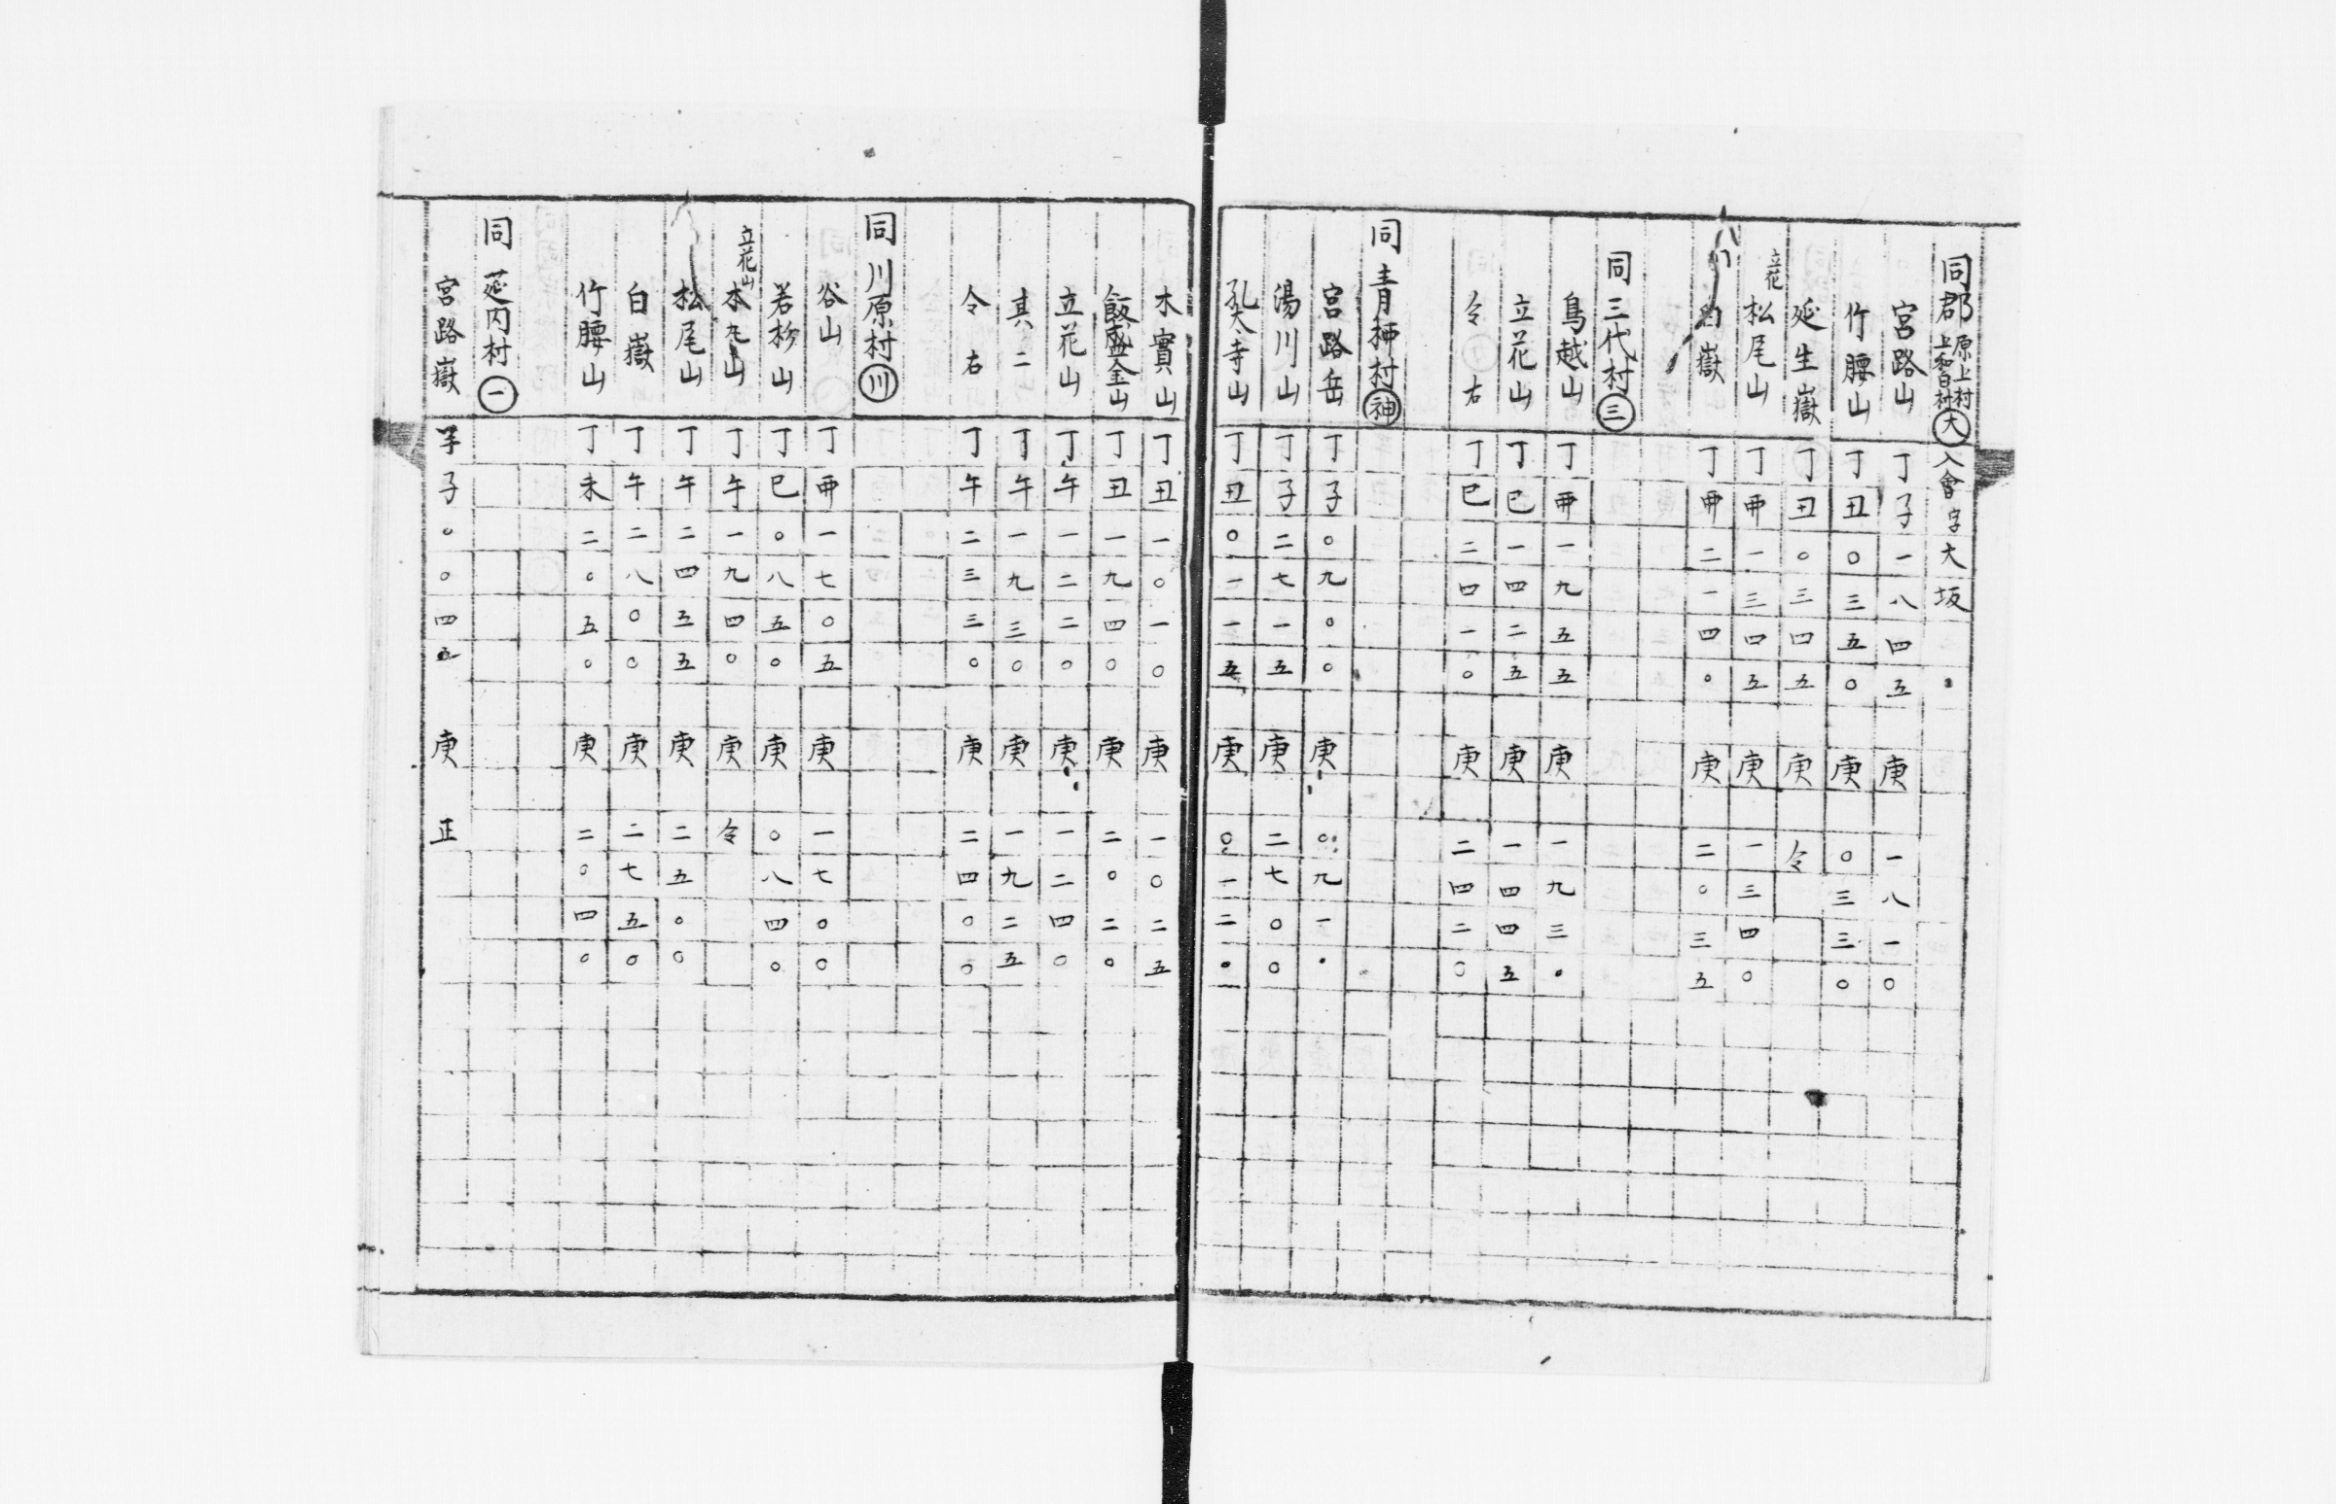 同郡 原上村 上和白村 大 入會字大坂
宮路山 丁子一八四五 庚 一八一〇
竹腰山 丁丑〇三五〇 庚 〇三三〇
延生嶽 丁丑〇三四五 庚 仝
立花 松尾山 丁酉一三四五 庚 一三四〇
白嶽 丁酉二一四〇 庚 二〇三五
同 三代村 三
鳥越山 丁酉一九五五 庚 一九三〇
立花山 丁巳一四二五 庚 一四四五
仝 右 丁巳二四一〇 庚 二四二〇
同 青柳村 神
宮路岳 丁子〇九〇〇 庚 〇九一〇
湯川山 丁子二七一五 庚 二七〇〇
孔大寺山 丁丑〇一一五 庚 〇一二〇
木實山 丁丑一〇一〇 庚 一〇二五
飯盛金山 丁丑一九四〇 庚 二〇二〇
立花山 丁午一二二〇 庚 一二四〇
其二 丁午一九三〇 庚 一九二五
仝 右 丁午二三三〇 庚 二四〇〇
同 川原村 川
谷山 丁酉一七〇五 庚 一七〇〇
若杉山 丁巳〇八五〇 庚 〇八四〇
立花山 本丸山 丁午一九四〇 庚 仝
松尾山 丁午二四五五 庚 二五〇〇
白嶽 丁午二八〇〇 庚 二七五〇
竹腰山 丁未二〇五〇 庚 二〇四〇
同 莚内村 一
宮路嶽 子〇〇四五 庚 正